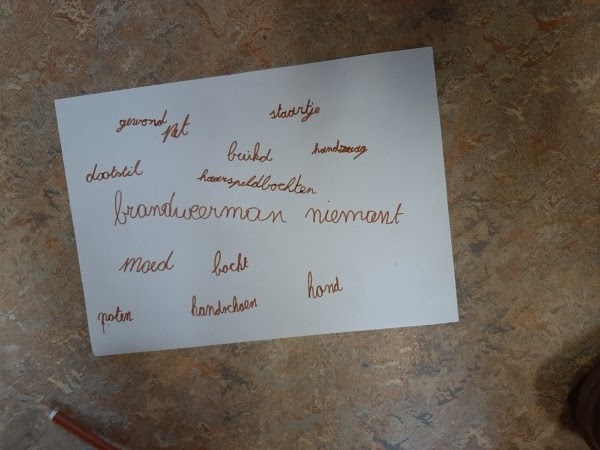 gewond
staartje
Pet
buikd
handzaag
dootstil
haarspeldbochten
brandweerman niemant
moed
bocht
hond
handschoen
poten